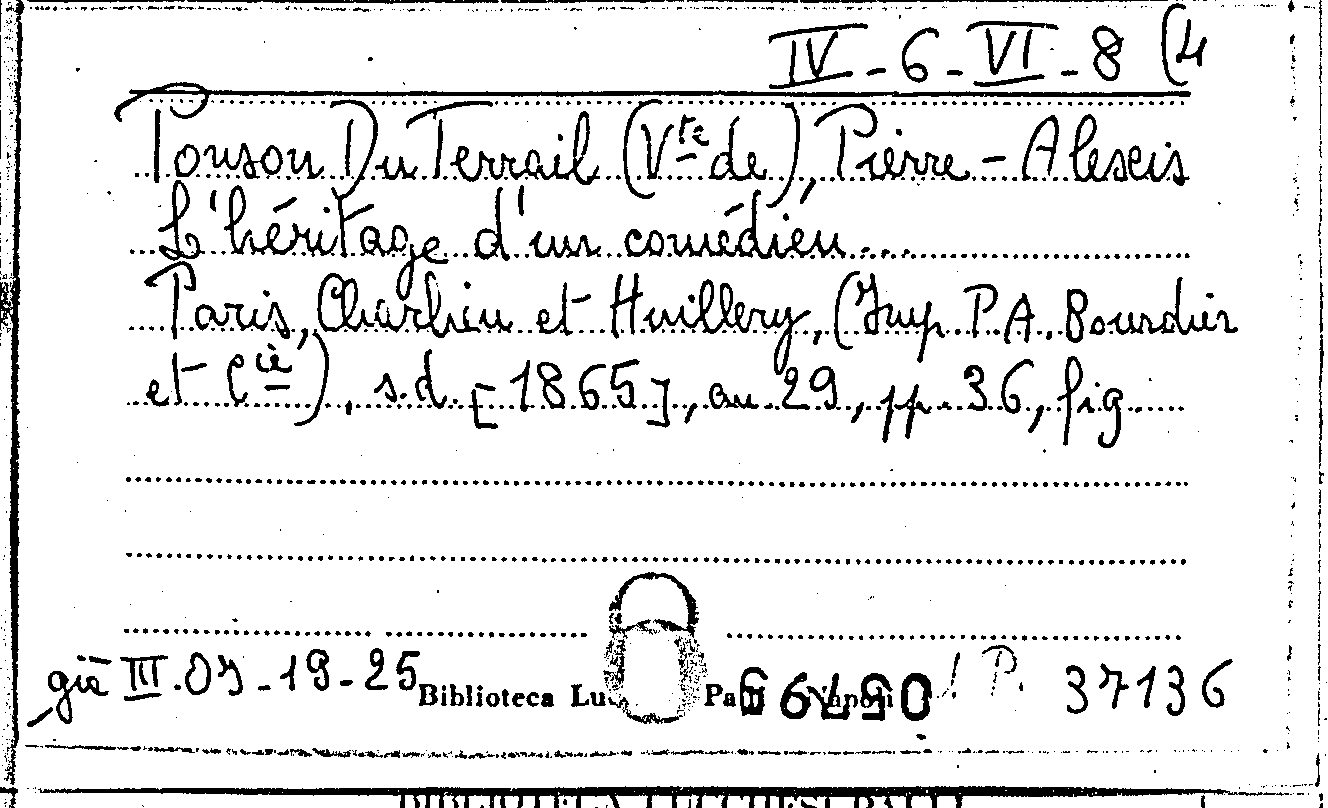 IV-6-VI-8 (4
Ponson Du Terrail (Vte de), Pierre-Alescis
L'héritage d'un comédien...
Paris, Charlieu et Huillery, (Imp. P.A. Bourdier
et Cie), s.d. [1865], au 29, pp. 36, fig
già III.OJ-19-25
Biblioteca
P. 37136